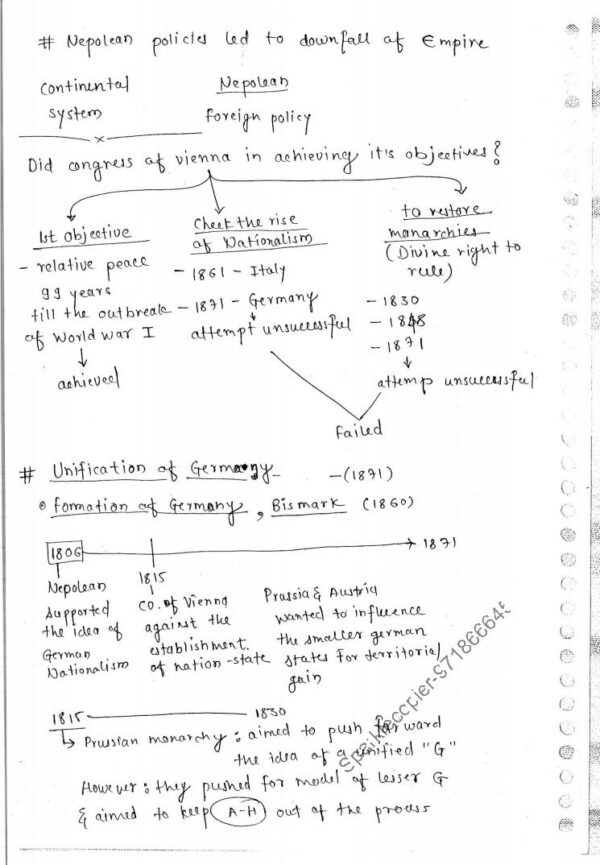 # Nepolean policies led to downfall of Empire
continental system
Nepolean foreign policy
x
Did congress of vienna in achieving it's objectives?
1st objective
- relative peace
99 years
till the outbreak
of World War I
achieved
Check the rise
of Nationalism
- 1861 - Italy
- 1871 - Germany
attempt unsuccessful
to restore
monarchies
(Divine right to
rule)
- 1830
- 1848
- 1871
attemp unsuccessful
Failed
# Unification of Germany - (1871)
• formation of Germany, Bismark (1860)
1806 1871
Nepolean
supported
the idea of
German
Nationalism
1815
CO. of Vienna
against the
establishment
of nation-state
Prussia & Austria
wanted to influence
the smaller german
states for territorial
gain
1815 1830
Prussian monarchy : aimed to push forward
the idea of a unified "G"
However : they pushed for model of lesser G
& aimed to keep A-H out of the process